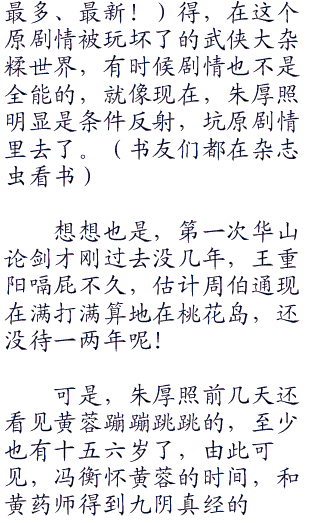 最多、最新！）得，在这个
原剧情被玩坏了的武侠大杂
糅世界，有时候剧情也不是
全能的，就像现在，朱厚照
明显是条件反射，坑原剧情
里去了。（书友们都在杂志
虫看书）
想想也是，第一次华山
论剑才刚过去没几年，王重
阳嗝屁不久，估计周伯通现
在满打满算地在桃花岛，还
没待一两年呢！
可是，朱厚照前几天还
看见黄蓉蹦蹦跳跳的，至少
也有十五六岁了，由此可
见，冯衡怀黄蓉的时间，和
黄药师得到九阴真经的